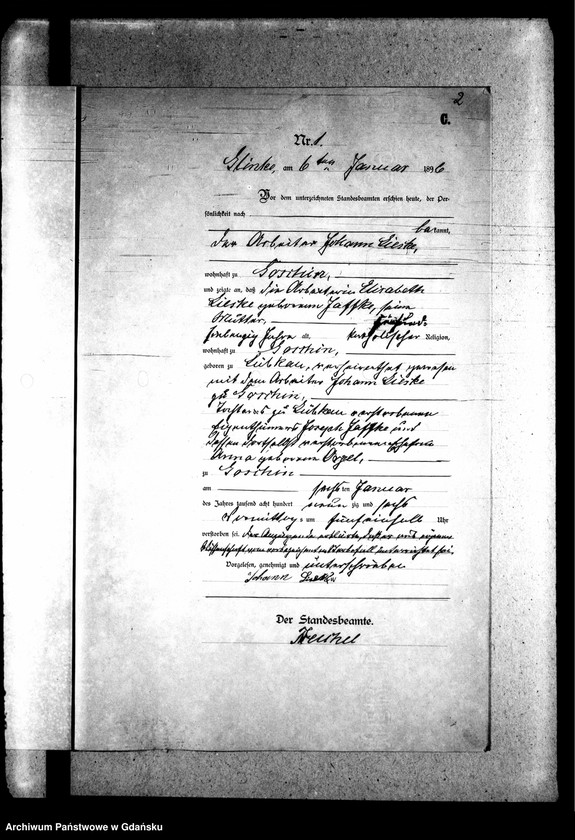 2
C.
Nr. 1.
Glinke, am 6ten Januar 1896
Vor dem unterzeichneten Standesbeamten erschien heute, der Per-
sönlichkeit nach
bekannt,
der Arbeiter Johann Lieske,
wohnhaft zu Goschin,
und zeigte an, daß die Arbeiterin Elisabeth
Lieske geborene Jaffke, seine
Mutter,
Jahre alt, katholischer Religion,
wohnhaft zu Goschin,
geboren zu Lübkau, verheirathet gewesen
mit dem Arbeiter Johann Lieske
zu Goschin,
Tochter des zu Lübkau verstorbenen
Eigenthümers Joseph Jaffke und
dessen daselbst verstorbenen Ehefrau
Anna geborene
zu Goschin
am sechsten Januar
des Jahres tausend acht hundert neunzig und sechs
Vormittags um fünfeinhalb Uhr
verstorben sei. Der Anzeigende erklärte, daß er aus eigener
Wissenschaft von vorbezeichnetem Sterbefall unterrichtet sei.
Vorgelesen, genehmigt und unterschrieben
Johann Lieske
Der Standesbeamte.
Archiwum Państwowe w Gdańsku